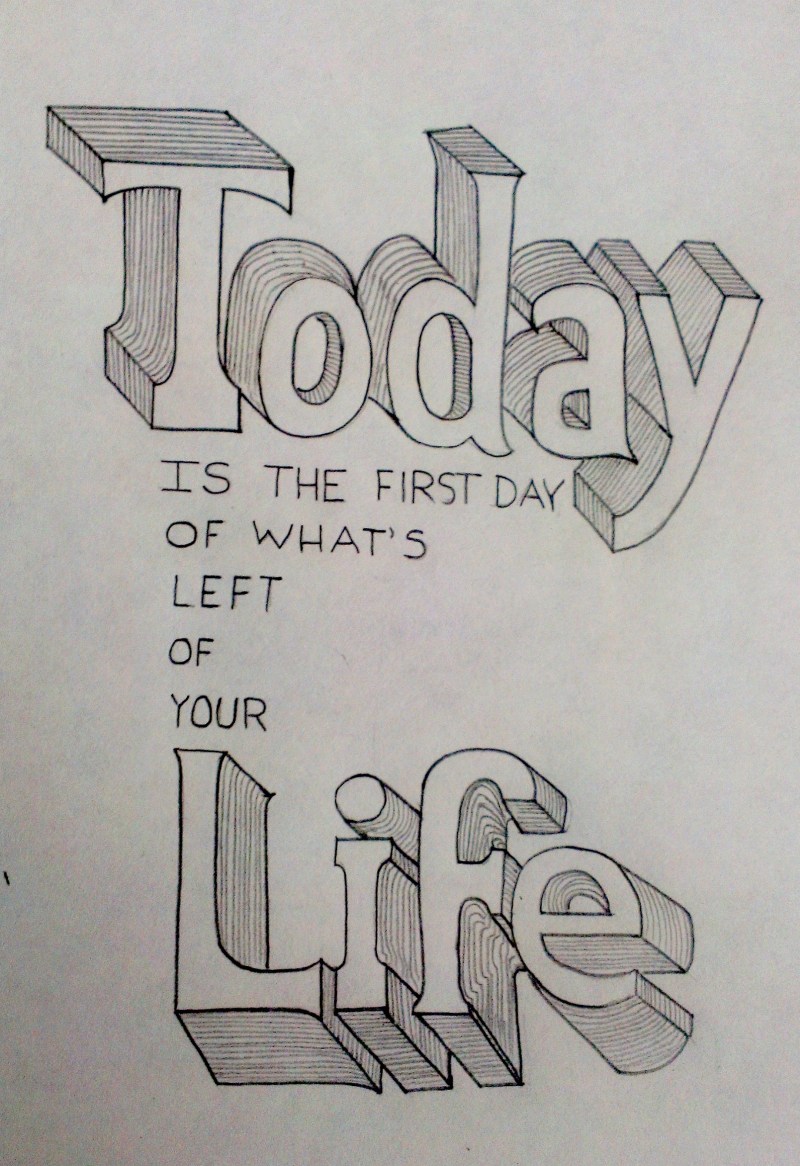 Today
IS THE FIRST DAY
OF WHAT'S
LEFT
OF
YOUR
Life